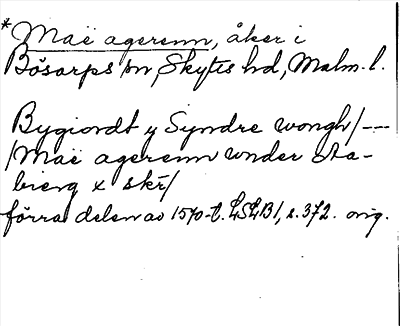 * Maë agerenn, åker i
Bösarps sn, Skytts hd, Malm. l.
Bygiordt y Syndre wongh/---
/Maë agerenn wnder sta-
bierg x skr/
förra delen av 1570-t. LSLB1, s. 372. orig.